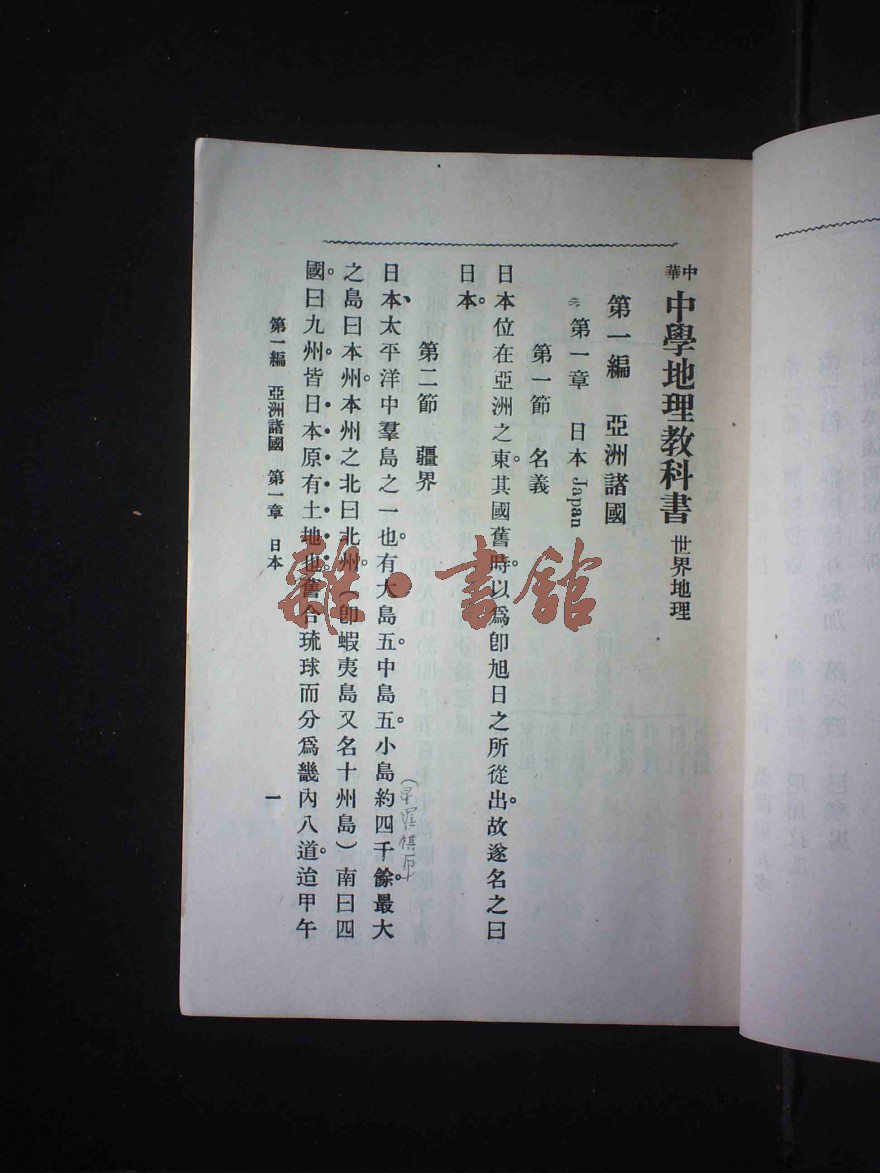 中華中學地理教科書 世界地理
第一編 亞洲諸國
第一章 日本 Japan
第一節 名義
日本位在亞洲之東。其國舊時。以爲卽旭日之所從出。故遂名之曰
日本。
第二節 疆界
日本、太平洋中羣島之一也。有大島五。中島五。小島約四千餘。最大
之島曰本州。本州之北曰北州。（卽蝦夷島又名十州島）南曰四
國。曰九州。皆日本原有土地也。舊合琉球而分爲畿內八道。迨甲午
第一編 亞洲諸國 第一章 日本
一
雜·書館